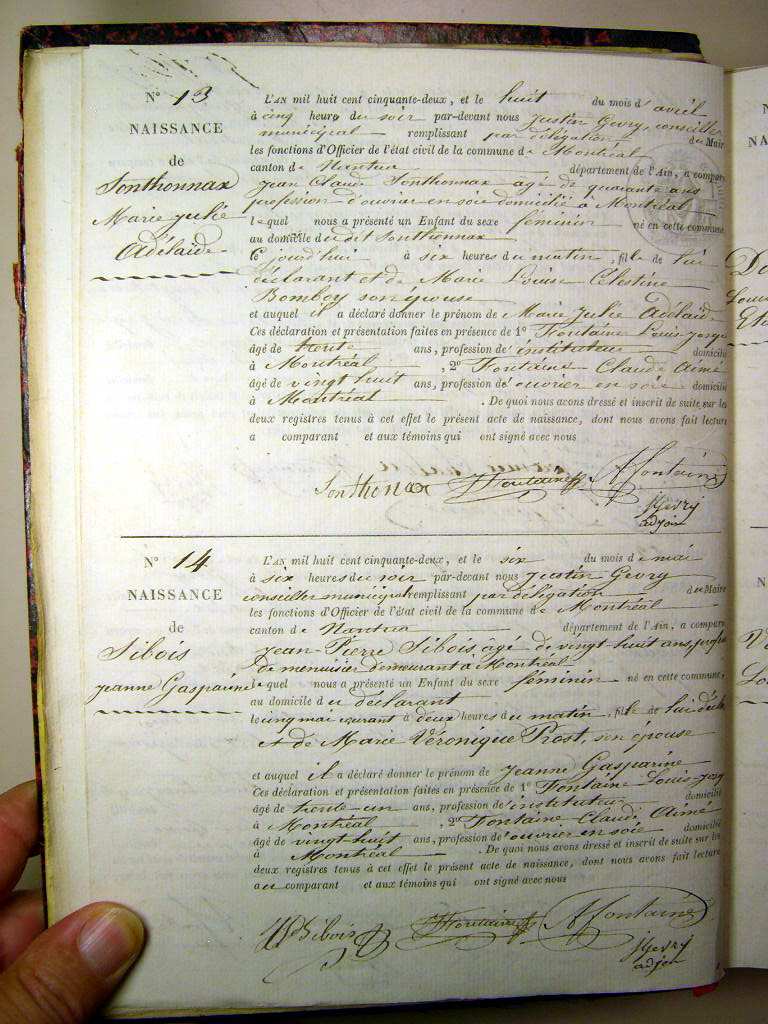 N° 13
NAISSANCE
de
Sonthonnax
Marie Julie
Adélaïde
L'AN mil huit cent cinquante-deux, et le huit du mois d'avril
à cinq heures du soir par-devant nous Justin Gevry, conseiller
municipal remplissant par délégation du Maire
les fonctions d'Officier de l'état civil de la commune de Montréal
canton de Nantua département de l'Ain, a comparu
Jean Claude Sonthonnax âgé de quarante ans
profession d'ouvrier en soie domicilié à Montréal
lequel nous a présenté un Enfant du sexe féminin né en cette commune
au domicile du dit Sonthonnax
ce jourd'hui à six heures du matin, fille de lui
déclarant et de Marie Louise Célestine
Bomboy son épouse
et auquel il a déclaré donner le prénom de Marie Julie Adélaïde
Ces déclaration et présentation faites en présence de 1° Fontaine Louis-Joseph
âgé de trente ans, profession d'instituteur domicilié
à Montréal, 2° Fontaine Claude Aimé
âgé de vingt huit ans, profession d'ouvrier en soie domicilié
à Montréal. De quoi nous avons dressé et inscrit de suite sur les
deux registres tenus à cet effet le présent acte de naissance, dont nous avons fait lecture
a comparant et aux témoins qui ont signé avec nous
Sonthonax Fontaine Afontaine
JGevry
adjoin
N° 14
NAISSANCE
de
Sibois
Jeanne Gasparine
L'AN mil huit cent cinquante-deux, et le six du mois de mai
à six heures du soir par-devant nous Justin Gevry
conseiller municipal remplissant par délégation du Maire
les fonctions d'Officier de l'état civil de la commune de Montréal
canton de Nantua département de l'Ain, a comparu
Jean-Pierre Sibois, âgé de vingt-huit ans, profess
de menuisier demeurant à Montréal
lequel nous a présenté un Enfant du sexe féminin né en cette commune,
au domicile du déclarant
le cinq mai courant à deux heures du matin, fille de lui décla
et de Marie Véronique Prost, son épouse
et auquel il a déclaré donner le prénom de Jeanne Gasparine
Ces déclaration et présentation faites en présence de 1° Fontaine Louis-Josep
âgé de trente-un ans, profession d'instituteur domicilié
à Montréal, 2° Fontaine Claude Aimé
âgé de vingt huit ans, profession d'ouvrier en soie domicilié
à Montréal. De quoi nous avons dressé et inscrit de suite sur les
deux registres tenus à cet effet le présent acte de naissance, dont nous avons fait lecture
au comparant et aux témoins qui ont signé avec nous
Sibois Fontaine Afontaine
JGevry
adjoin